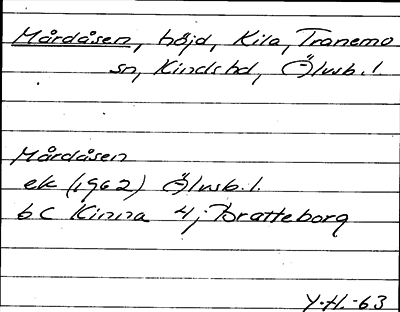 Mårdåsen, höjd, Kila, Tranemo
sn, Kinds hd, Älvsb. l.
Mårdåsen
ek (1962) Älvsb. l.
bC Kinna 4; Bratteborg
Y.H. -63